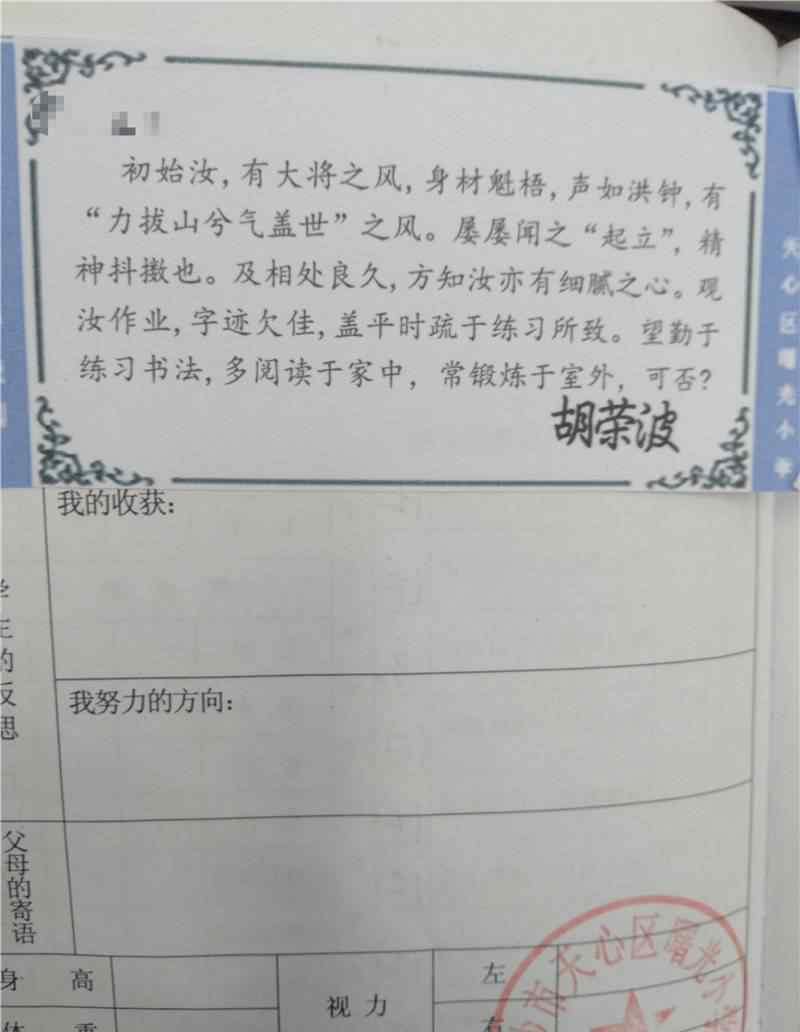 初始汝,有大将之风,身材魁梧,声如洪钟,有
“力拔山兮气盖世”之风。屡屡闻之“起立”,精
神抖擞也。及相处良久,方知汝亦有细腻之心。观
汝作业,字迹欠佳,盖平时疏于练习所致。望勤于
练习书法,多阅读于家中,常锻炼于室外,可否?
胡荣波
天心区曙光小学
我的收获:
学生的反思
我努力的方向:
父母的寄语
身高
视力
左
体重
右
市天心区曙光小